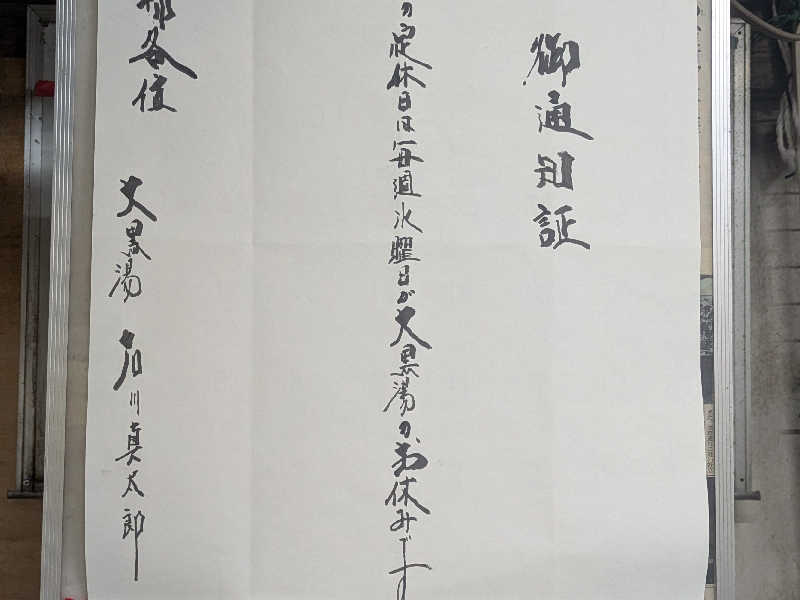 御通知証
の定休日は毎週水曜日が大黒湯の、お休みです
各位
大黒湯 石川真太郎